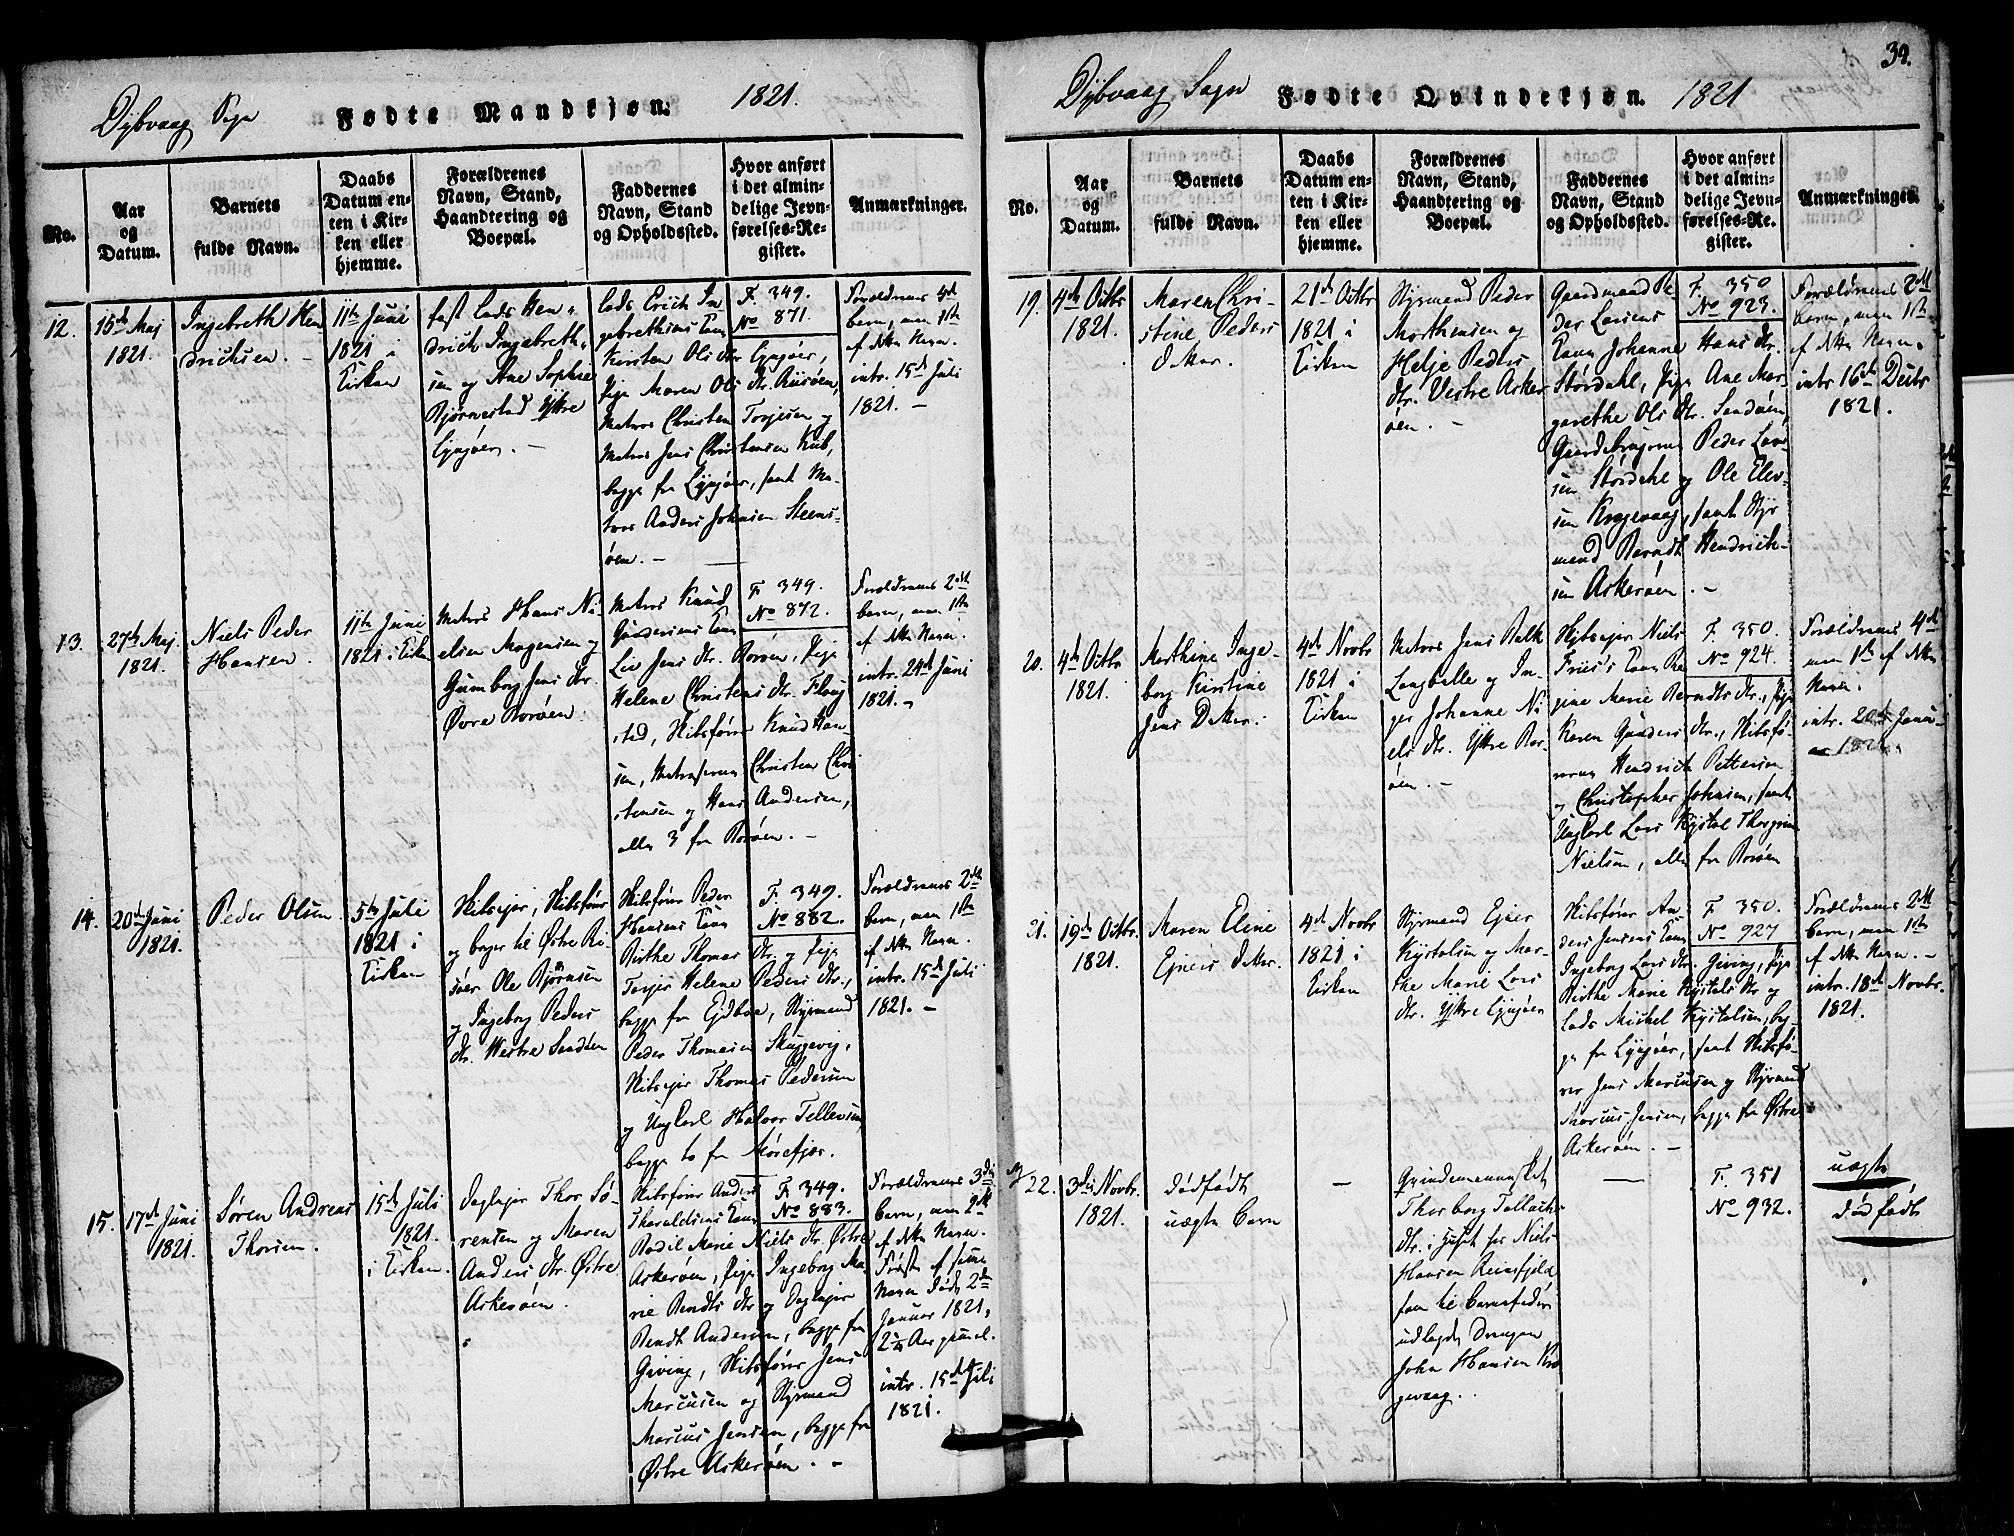 Dybvaag Sogn
Fødte Mandkjøn.
1821.
No.
Aar
og
Datum.
Barnets
fulde Navn.
Daabs
Datum en-
ten i Kir-
ken eller
hjemme.
Forældrenes
Navn, Stand,
Haandtering og
Boepæl.
Faddernes
Navn, Stand
og Opholdssted.
Hvor anført
i det almin-
delige Jevn-
førelses-Re-
gister.
Anmærkninger.
12.
15de Maj
1821.
Ingebreth Hen
drichsen. -
11te Juni
1821 i
Kirken
fast Lods Hen-
drich Ingebreth-
sen og Ane Sophie
Bjørnestad Yttre
Lyngøer. -
Lods Erich In
gebrethsens Kone
Kirsten Ols Dtr. Lyngøer,
Pige Maren Ols Dtr. Riisøen,
Matros Christen Torjesen og
Matros Jens Christensen Kub,
begge fra Lyngøer, samt Ma-
tros Anders Johnsen Steens-
øen. -
F. 349.
No 871.
Forældrenes 4de
barn, men 1ste
af dette Navn.
intr. 15de Juli
1821. -
13.
27de Maj
1821.
Niels Peder
Hansen.
11te Juni
1821 i Kirken
Matros Hans Ni
elsen Mogensen og
Gumborg Jens Dtr.
Øvre Borøen.
Matros Knud
Gundersens Kone
Liv Jens Dtr. Borøen, Pige
Helene Christens Dtr. Flong
stad, Skibsfører Knud Han-
sen, Matroserne Christen Chri
stensen og Hans Andersen,
alle 3 fra Borøen. -
F. 349.
No 872.
Forældrenes 2det
barn, men 1ste
af dette Navn.
intr. 24de Juni
1821. -
14.
20de Juni
1821.
Peder Olsen.
5te Juli
1821 i
Kirken
Skibsejer, Skibsfører
og borger til Østre Ri-
søer Ole Bjørnsen
og Ingeborg Peders
Dtr. Westre Sandøen
Skibsfører Peder
Hansens Kone
Birthe Thomas Dtr. og Pige
Torjer Helene Peders Dtr.,
begge fra Eydboe, Styrmand
Peder Thomesen Skuggevig,
Skibsejer Thomas Pedersen
og Ungkarl Halvor Tellevsen
begge to fra Mørefjær.
F. 349.
No 882.
Forældrenes 2det
barn, men 1ste
af dette Navn.
intr. 15de Juli
1821. -
15.
17de Juni
1821.
Søren Andreas
Thorsen.
15de Juli
1821.
i Kirken.
Daglejer Thor Sø-
rensen og Maren
Anders Dtr. Østre
Askerøen.
Skibsfører Anders
Tharaldsens Kone
Bodil Marie Niels Dtr. Østre
Askerøen, Pige Ingeborg Ma-
rie Bendts Dtr. og Daglejer
Bendt Andersen, begge fra
Giving, Skibsfører Jens
Marcussen og Styrmand
Marcus Jensen, begge fra
Østre Askerøen. -
F. 349.
No 883.
Forældrenes 3die
barn, men 2det
af dette Navn.
Første af samme
Navn døde 2den
Januar 1821,
intr. 15de Juli
1821.
34.
Dybvaag Sogn
Fødte Qvindekjøn.
1821
No.
Aar
og
Datum.
Barnets
fulde Navn.
Daabs
Datum en-
ten i Kir-
ken eller
hjemme.
Forældrenes
Navn, Stand,
Haandtering og
Boepæl.
Faddernes
Navn, Stand
og Opholdssted.
Hvor anført
i det almin-
delige Jevn-
førelses-Re-
gister.
Anmærkninger.
19.
4de Octbr
1821.
Maren Chri-
stine Peders
Datter.
21de Octbr
1821 i
Kirken
Styrmand Peder
Morthensen og
Helje Peders
Dtr. Vestre Asker
øen. -
Gaardmand Pe-
der Larsens
Kone Johanne Hans Dtr.
Størdahl, Pige Ane Mar-
garethe Ols Dtr. Sandøen
Gaardbrugerne Peder Lar-
sen Størdahl og Ole Elev-
sen Krogevaag, samt Styr
mand Berndt Hendrich-
sen Askerøen. -
F. 350
No 923.
Forældrenes 2det
barn, men 1ste
af dette Navn.
intr. 16de Decbr
1821.
20.
4de Octbr
1821.
Morthine Inge-
borg Kirstine
Jens Datter.
4de Novbr
1821 i
Kirken
Matros Jens Falk
Longballe og In-
ger Johanne Ni
els Dtr. Yttre Bor-
øen. -
Skibsejer Niels
Fries's Kone Re-
gine Marie Berndts Dtr., Pige
Karen Gunders Dtr., Skibsfø-
rerne Hendrich Pettersen
og Christopher Johnsen, samt
Ungkarl Lars Kystol Thorgrim
Nielsen, alle fra Borøen
F. 350.
No 924.
Forældrenes 4de
men 1ste af dette
Navn.
intr. 20de Janu-
ar 1822.
21.
19de Octbr.
1821.
Maren Eline
Ejners Datter.
4de Novbr
1821 i
Kirken
Styrmand Ejner
Kystolsen og Mar-
the Marie Lars
Dtr. Yttre Lyngøer
Skibsfører An-
ders Jensens Kone
Ingeborg Lars Dtr. Giving, Pige
Birthe Marie Kystols Dtr og
Lods Mickel Kystolsen, beg-
ge fra Lyngøer, samt Skibsfø-
rer Jens Marcussen og Styrmand
Marcus Jensen, begge fra Østre
Askerøen. -
F. 350.
No 927
Forældrenes 2det
barn, men 1ste
af dette Navn. -
intr. 18de Novbr.
1821.
22.
3die Novbr.
1821.
dødfødt
uægte barn
-
Qvindemennesket
Thorborg Tollachs
Dtr. i Huset hos Niels
Hansen Reinsfjeld
som til Barnefader
udlagde Drengen
John Hansen Kro
gevaag.
-
F. 351
No 932.
uægte
dødfødt